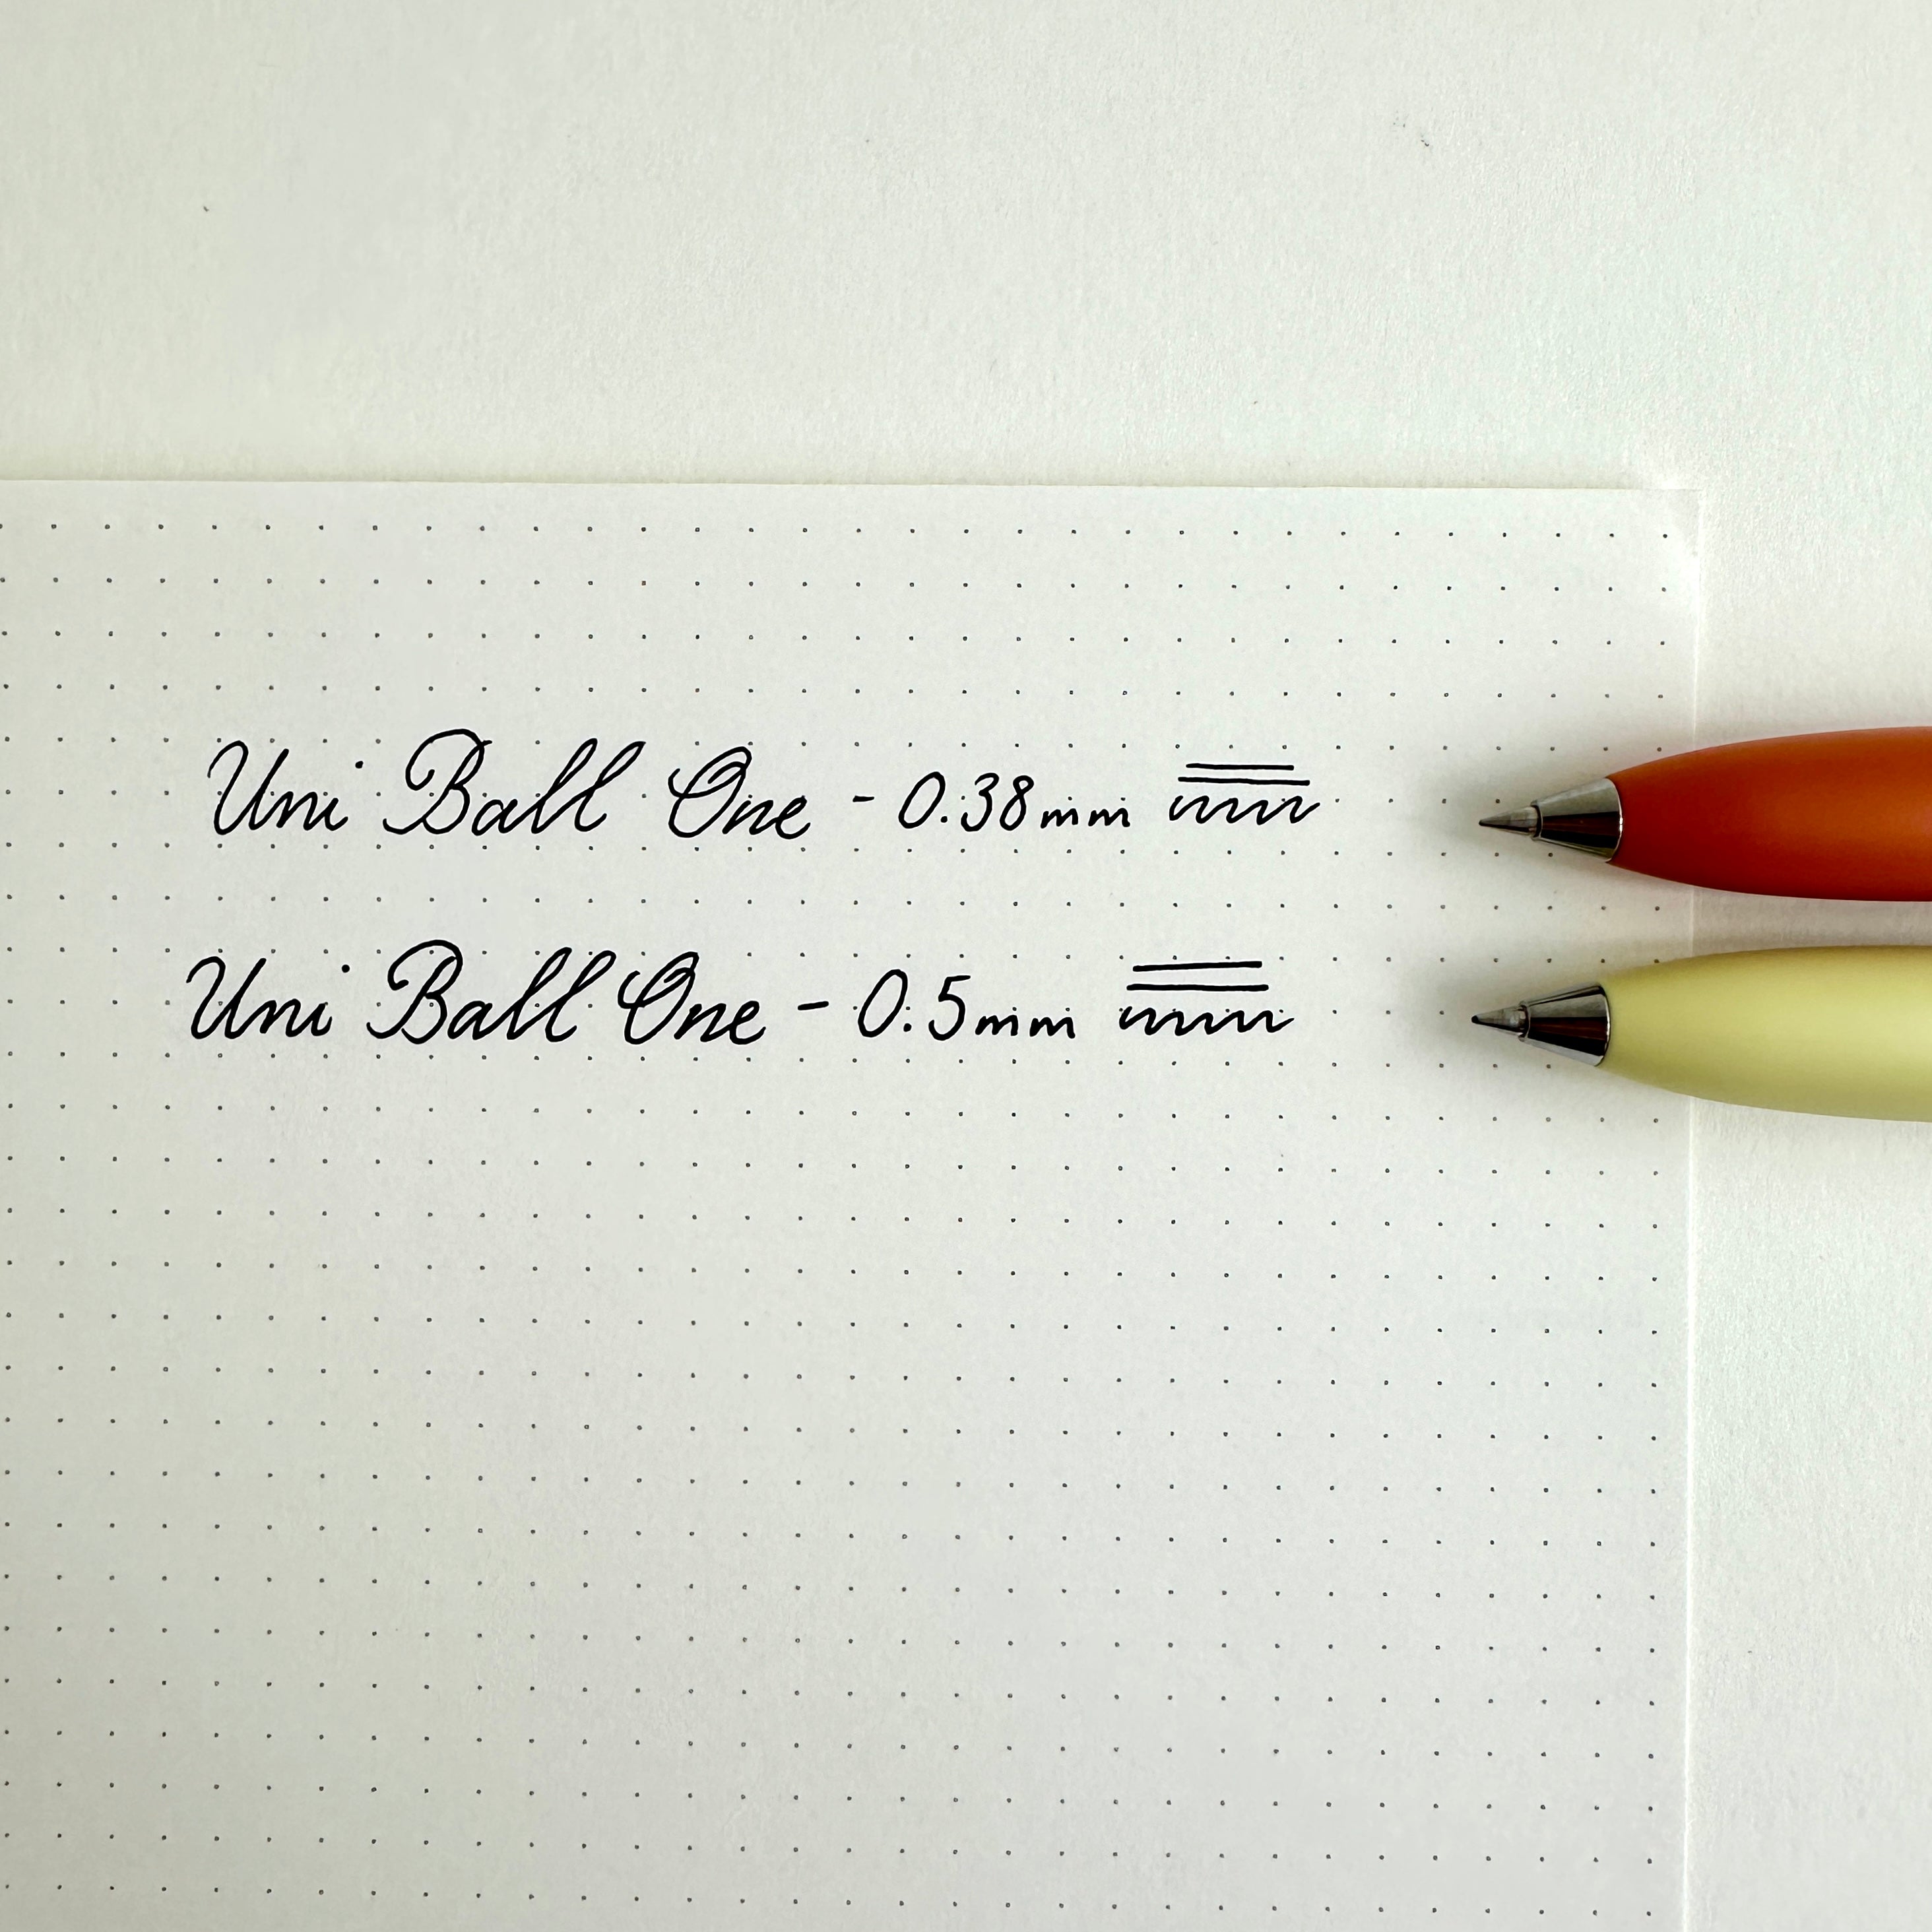 Uni Ball One - 0.38mm
Uni Ball One - 0.5mm